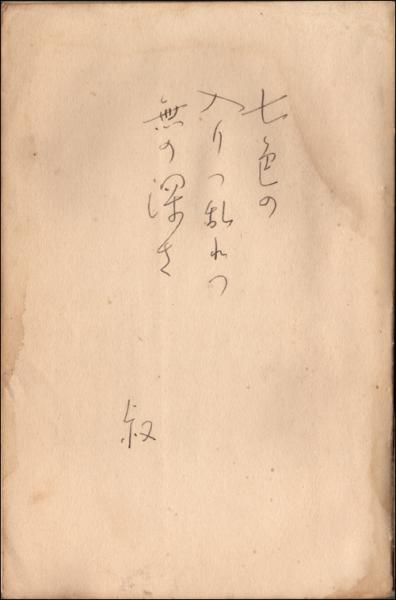 七色の
入りつ乱れつ
無の深さ
叙